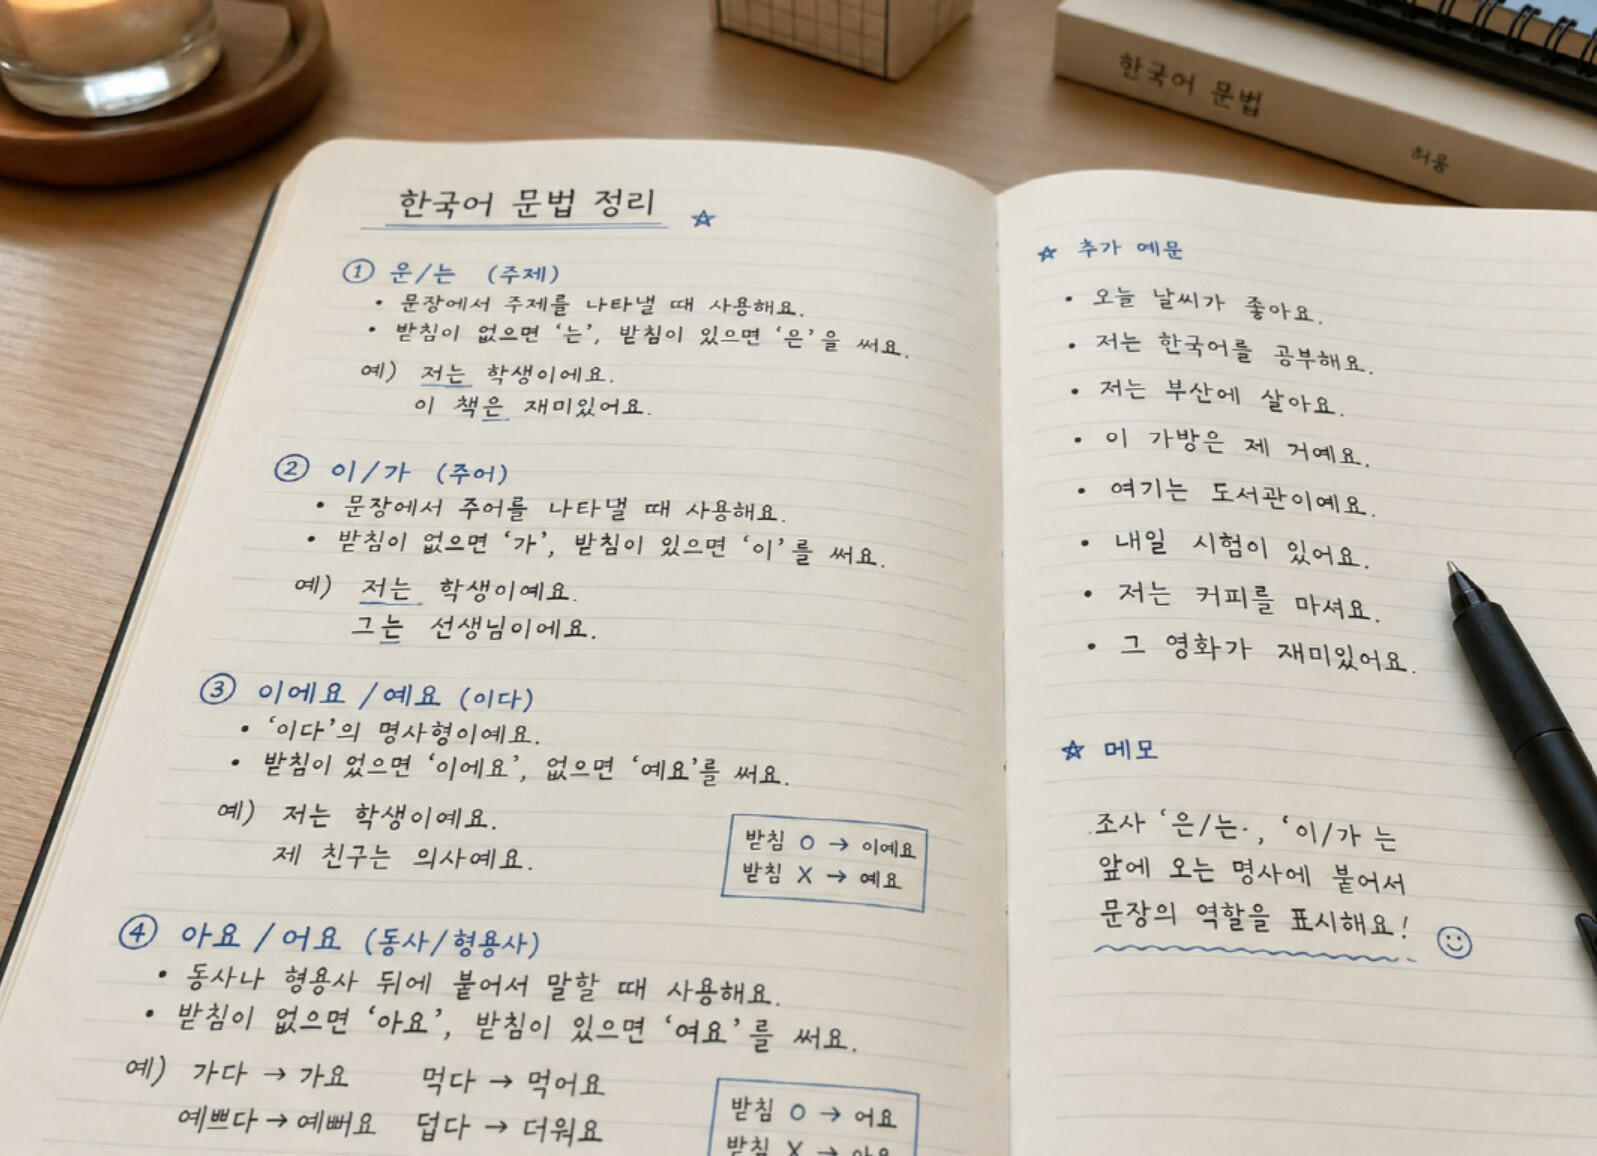 한국어 문법
허용
한국어 문법 정리
① 운/는 (주제)
• 문장에서 주제를 나타낼 때 사용해요.
• 받침이 없으면 ‘는’, 받침이 있으면 ‘은’을 써요.
예) 저는 학생이에요.
이 책은 재미있어요.
② 이/가 (주어)
• 문장에서 주어를 나타낼 때 사용해요.
• 받침이 없으면 ‘가’, 받침이 있으면 ‘이’를 써요.
예) 저는 학생이예요.
그는 선생님이에요.
③ 이에요 / 예요 (이다)
• ‘이다’의 명사형이예요.
• 받침이 었으면 ‘이에요’, 없으면 ‘예요’를 써요.
예) 저는 학생이예요.
제 친구는 의사예요.
받침 O → 이예요
받침 X → 예요
④ 아요 / 어요 (동사/형용사)
• 동사나 형용사 뒤에 붙어서 말할 때 사용해요.
• 받침이 없으면 ‘아요’, 받침이 있으면 ‘여요’를 써요.
예) 가다 → 가요 먹다 → 먹어요
예쁘다 → 예뻐요 덥다 → 더워요
받침 O → 어요
받침 X →
☆ 추가 예문
• 오늘 날씨가 좋아요.
• 저는 한국어를 공부해요.
• 저는 부산에 살아요.
• 이 가방은 제 거예요.
• 여기는 도서관이예요.
• 내일 시험이 있어요.
• 저는 커피를 마셔요.
• 그 영화가 재미있어요.
☆ 메모
조사 ‘은/는·, ‘이/가 는
앞에 오는 명사에 붙어서
문장의 역할을 표시해요!